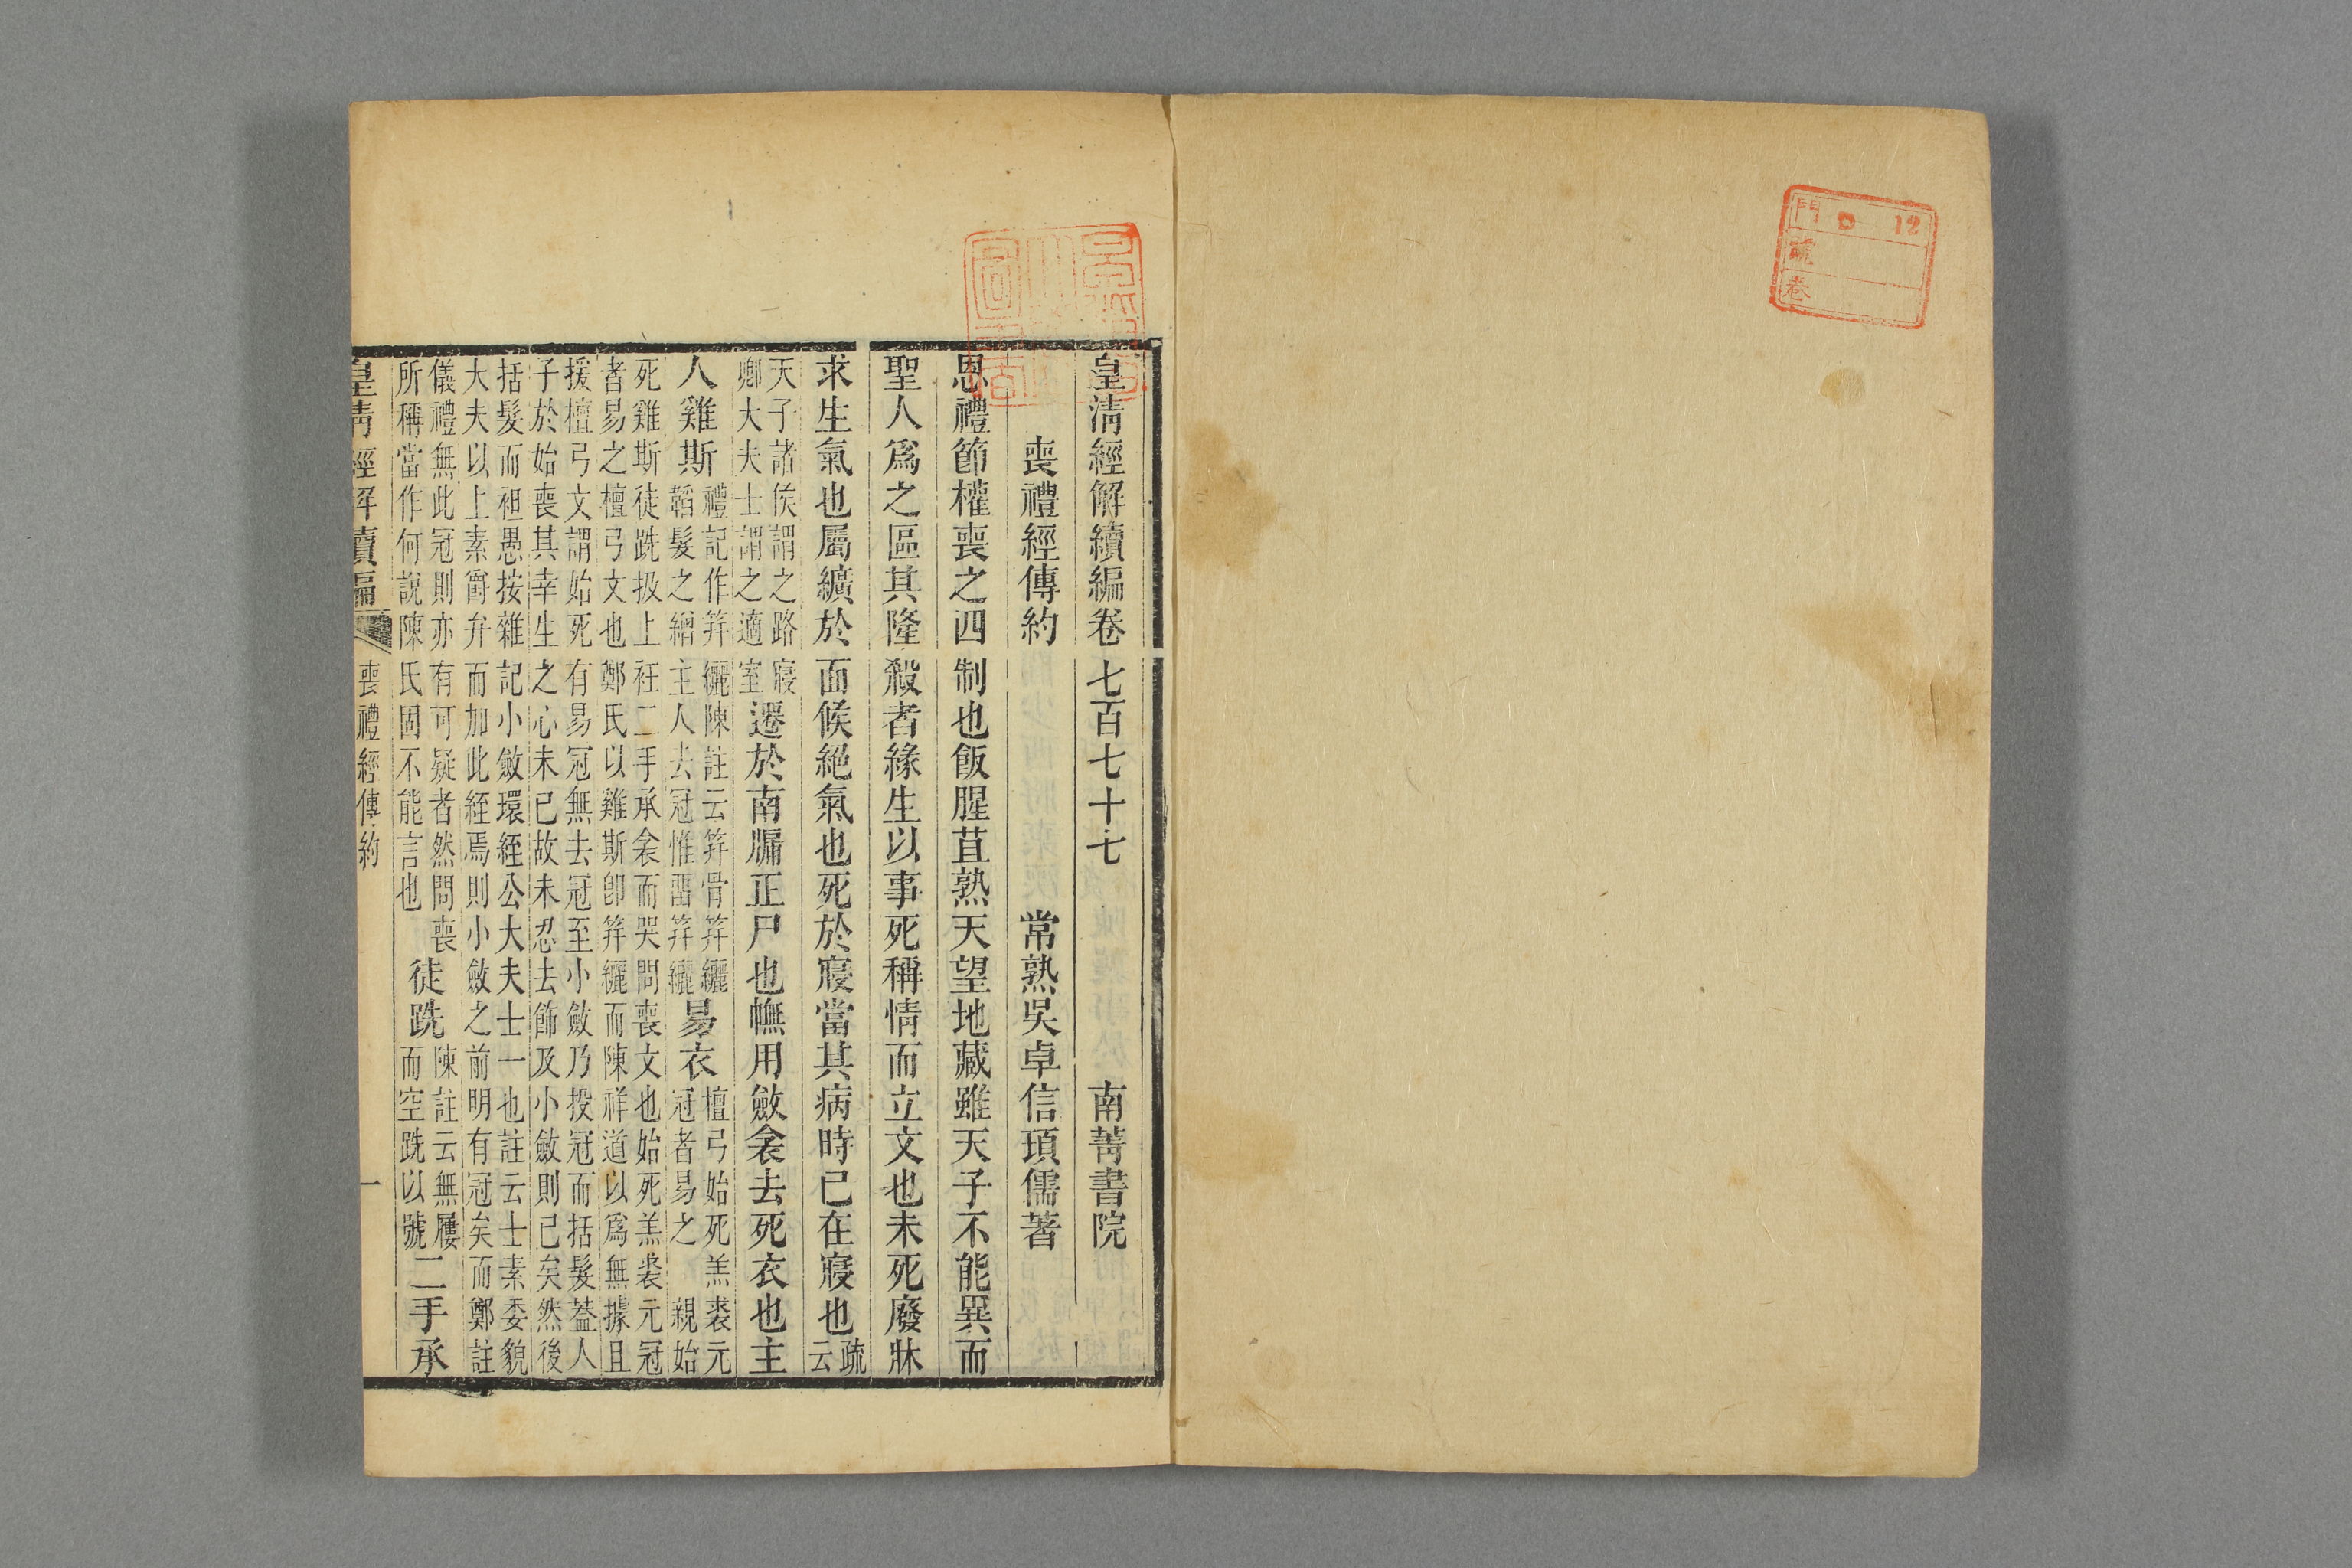 門 12
號
卷
皇清經解續編卷七百七十七 南菁書院
喪禮經傳約 常熟吳卓信頊儒著
恩禮節權喪之四制也飯腥苴熟天望地藏雖天子不能異而
聖人爲之區其隆殺者緣生以事死稱情而立文也未死廢牀
求生氣也屬纊於面候絕氣也死於寢當其病時已在寢也疏云
天子諸侯謂之路寢
卿大夫士謂之適室
遷於南牖正尸也幠用斂衾去死衣也主
人雞斯
禮記作笄纚陳註云笄骨笄纚
韜髮之繒主人去冠惟畱笄纚
易衣
檀弓始死羔裘元
冠者易之 親始
死雞斯徒跣扱上衽二手承衾而哭問喪文也始死羔裘元冠
者易之檀弓文也鄭氏以雞斯卽笄纚而陳祥道以爲無據且
援檀弓文謂始死有易冠無去冠至小斂乃投冠而括髮葢人
子於始喪其幸生之心未已故未忍去飾及小斂則已矣然後
括髮而袒愚按雜記小斂環絰公大夫士一也註云士素委貌
大夫以上素爵弁而加此絰焉則小斂之前明有冠矣而鄭註
儀禮無此冠則亦有可疑者然問喪
所稱當作何說陳氏固不能言也
徒跣
陳註云無屨
而空跣以號
二手承
皇清經解續編 喪禮經傳約 一